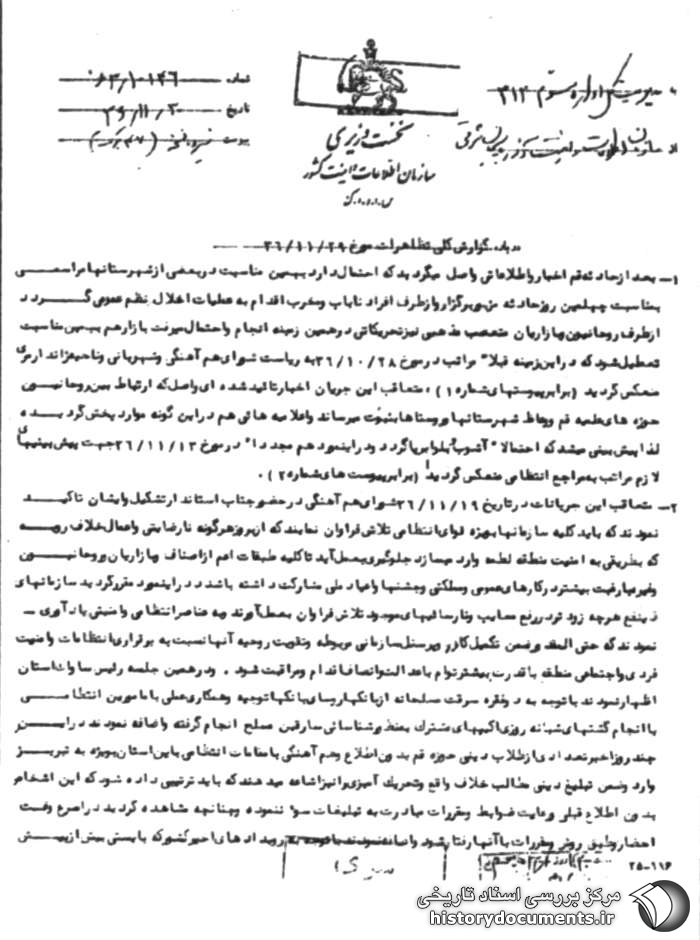 شماره ۰۶۳/۱۰۱۴۶
تاریخ ۳۶/۱۱/۳۰
پیوست
به مدیریت کل اداره سوم ۳۱۲
از سازمان اطلاعات و امنیت آذربایجان شرقی
نخست وزیری
سازمان اطلاعات و امنیت کشور
س.ا.و.ا.ک
درباره گزارش کلی تظاهرات مورخ ۳۶/۱۱/۲۹
۱- بعد از حادثه قم اخبار و اطلاعاتی واصل میگردید که احتمال دارد بهمین مناسبت در بعضی از شهرستانها مراسمی
بمناسبت چهلمین روز حادثه مزبور برگزار و از طرف افراد ناباب و مخرب اقدام به عملیات اخلال نظم عمومی گردد
از طرف روحانیون و بازاریان متعصب مذهبی نیز تحریکاتی در همین زمینه انجام و احتمال میرفت بازار هم بهمین مناسبت
تعطیل شود که در این زمینه قبلا" مراتب در مورخ ۳۶/۱۰/۲۸ به ریاست شورای هم آهنگی و شهربانی و ناحیه ژاندارمری
منعکس گردید (برابر پیوستهای شماره ۱) ، متعاقب این جریان اخبار تائید شده ای واصل که ارتباط بین روحانیون
حوزه های علمیه قم و وعاظ شهرستانها و روستاها بثبوت میرساند و اعلامیه هائی هم در این گونه موارد پخش گردیده
لذا پیش بینی میشد که احتمالا" آشوب و بلوا برپا گردد و در اینمورد هم مجددا" در مورخ ۳۶/۱۱/۱۳ جهت پیش بینیهای
لازم مراتب به مراجع انتظامی منعکس گردید (برابر پیوست های شماره ۲) .
۲- متعاقب این جریانات در تاریخ ۳۶/۱۱/۱۹ شورای هم آهنگی در حضور جناب استاندار تشکیل و ایشان تاکید
نمودند که باید کلیه سازمانها بویژه قوای انتظامی تلاش فراوان نمایند که از بروز هرگونه نارضایتی و اعمال خلاف رویه
که بطریقی به امنیت منطقه لطمه وارد میسازد جلوگیری بعمل آید تا کلیه طبقات اعم از اصناف و بازاریان و روحانیون
وغیره با رغبت بیشتر در کارهای عمومی و مملکتی و جشنها و اعیاد ملی مشارکت داشته باشند در اینمورد مقرر گردید سازمانهای
ذینفع هرچه زودتر در رفع معایب و نارسائیهای موجود تلاش فراوان بعمل آورند و به عناصر انتظامی و امنیتی یادآوری -
نمودند که حتی المقدور ضمن تکمیل کادر و پرسنل سازمانی مربوطه و تقویت روحیه آنها نسبت به برقراری انتظامات و امنیت
فردی و اجتماعی منطقه با قدرت بیشتر توام با عدالت و انصاف اقدام و مراقبت شود . و در همین جلسه رئیس ساواک استان
اظهار نمودند با توجه به دو فقره سرقت مسلحانه از بانکها روسای بانکها توجیه و همکاری عملی با مامورین انتظامی
با انجام گشتهای شبانه روزی اکیپهای مشترک بمنظور شناسائی سارقین مسلح انجام گرفته و اضافه نمودند در این
چند روز اخیر تعدادی از طلاب دینی حوزه قم بدون اطلاع و هم آهنگی با مقامات انتظامی باین استان بویژه به تبریز
وارد و ضمن تبلیغ دینی مطالب خلاف واقع و تحریک آمیزی را نیز اشاعه میدهند که باید ترتیبی داده شود که این اشخاص
بدون اطلاع قبلی و رعایت ضوابط و مقررات مبادرت به تبلیغات سوء ننموده و چنانچه مشاهده گردید در اسرع وقت
احضار و طبق روش و مقررات با آنها رفتار شود و اضافه نمودند با توجه به رویدادهای اخیر کشور که بایستی بیش از پیش
۲۵-۱۱۶
سری
مرکز بررسی اسناد تاریخی
historydocuments.ir